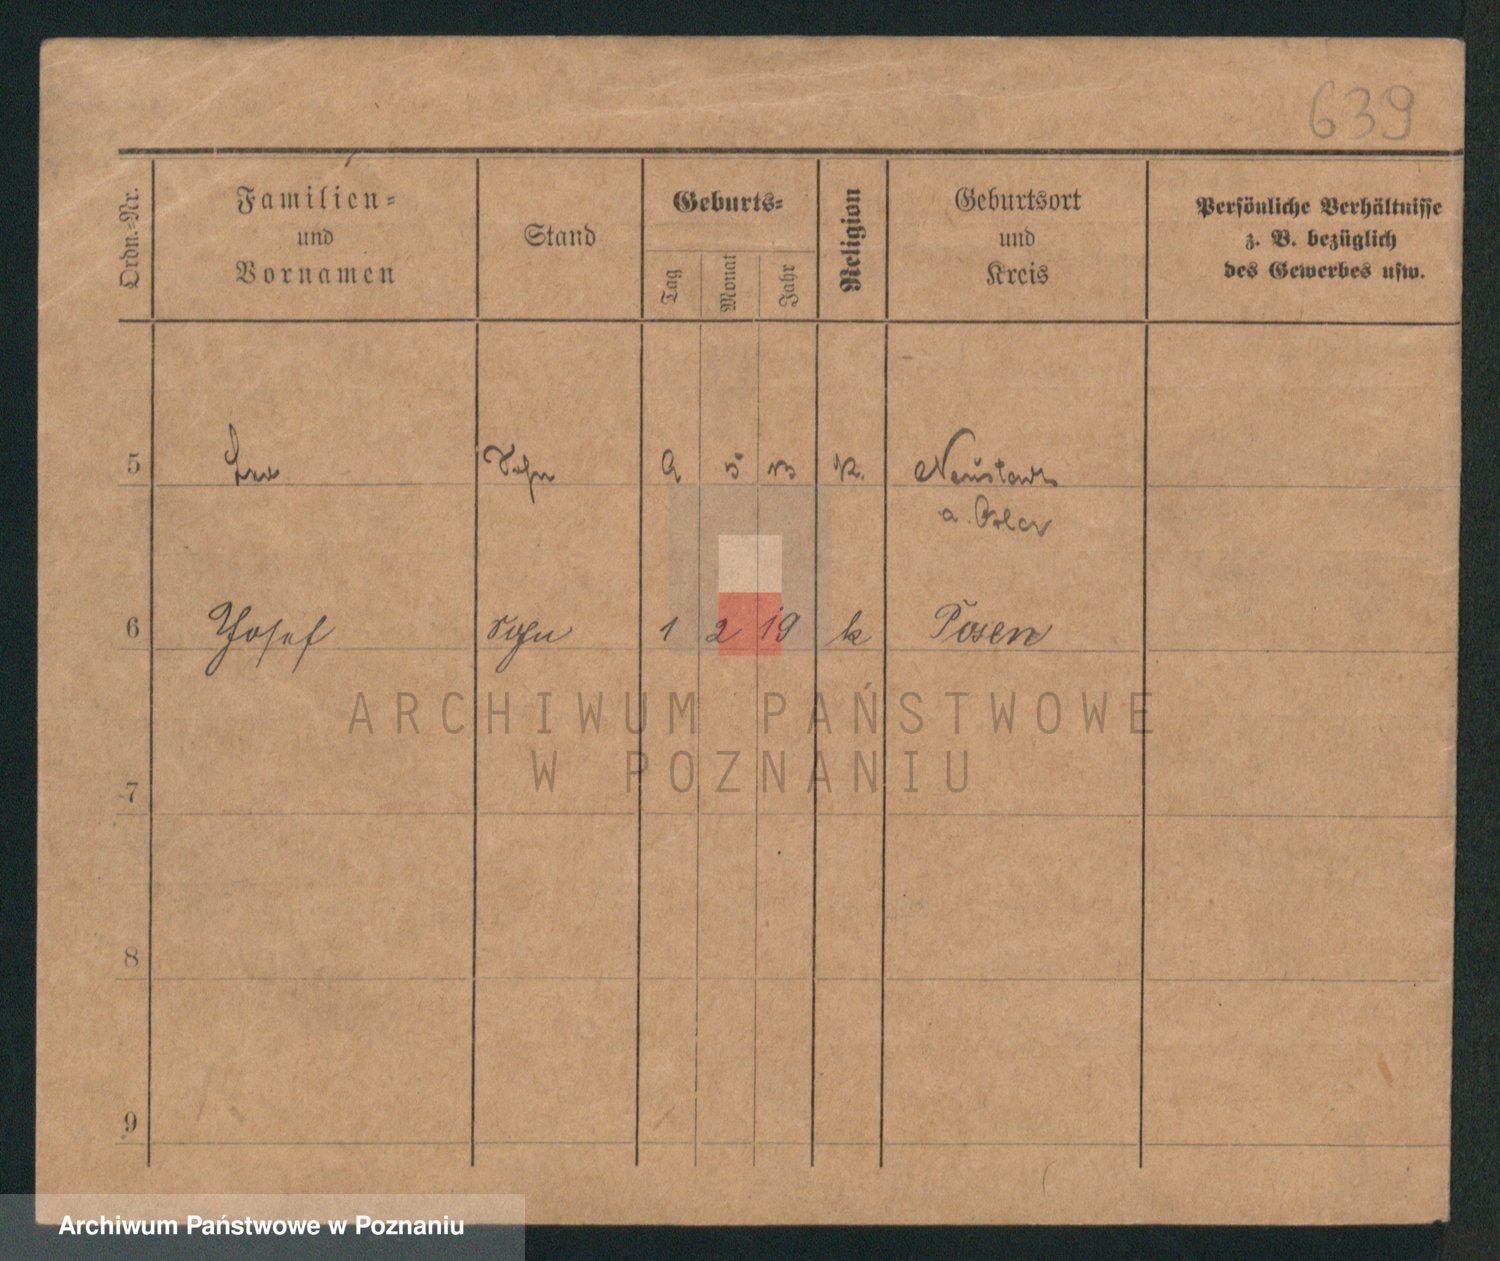 639
Ordn.-Nr.
Familien-
und
Vornamen
Stand
Geburts-
Tag
Monat
Jahr
Religion
Geburtsort
und
Kreis
Persönliche Verhältnisse
z. B. bezüglich
des Gewerbes usw.
5 Leo Sohn 5 13 K. Neustadt
a.
6 Josef Sohn 1 2 19 k Posen
ARCHIWUM PAŃSTWOWE
W POZNANIU
7
8
9
Archiwum Państwowe w Poznaniu